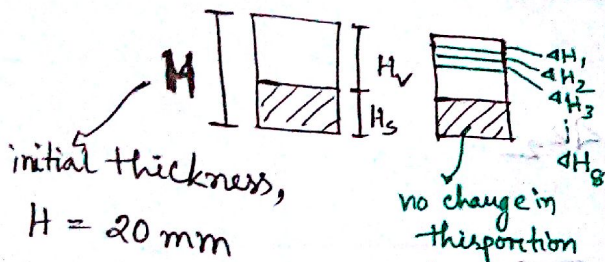 H
H_v
H_s
ΔH_1
ΔH_2
ΔH_3
ΔH_8
initial thickness,
H = 20 mm
no change in
this portion